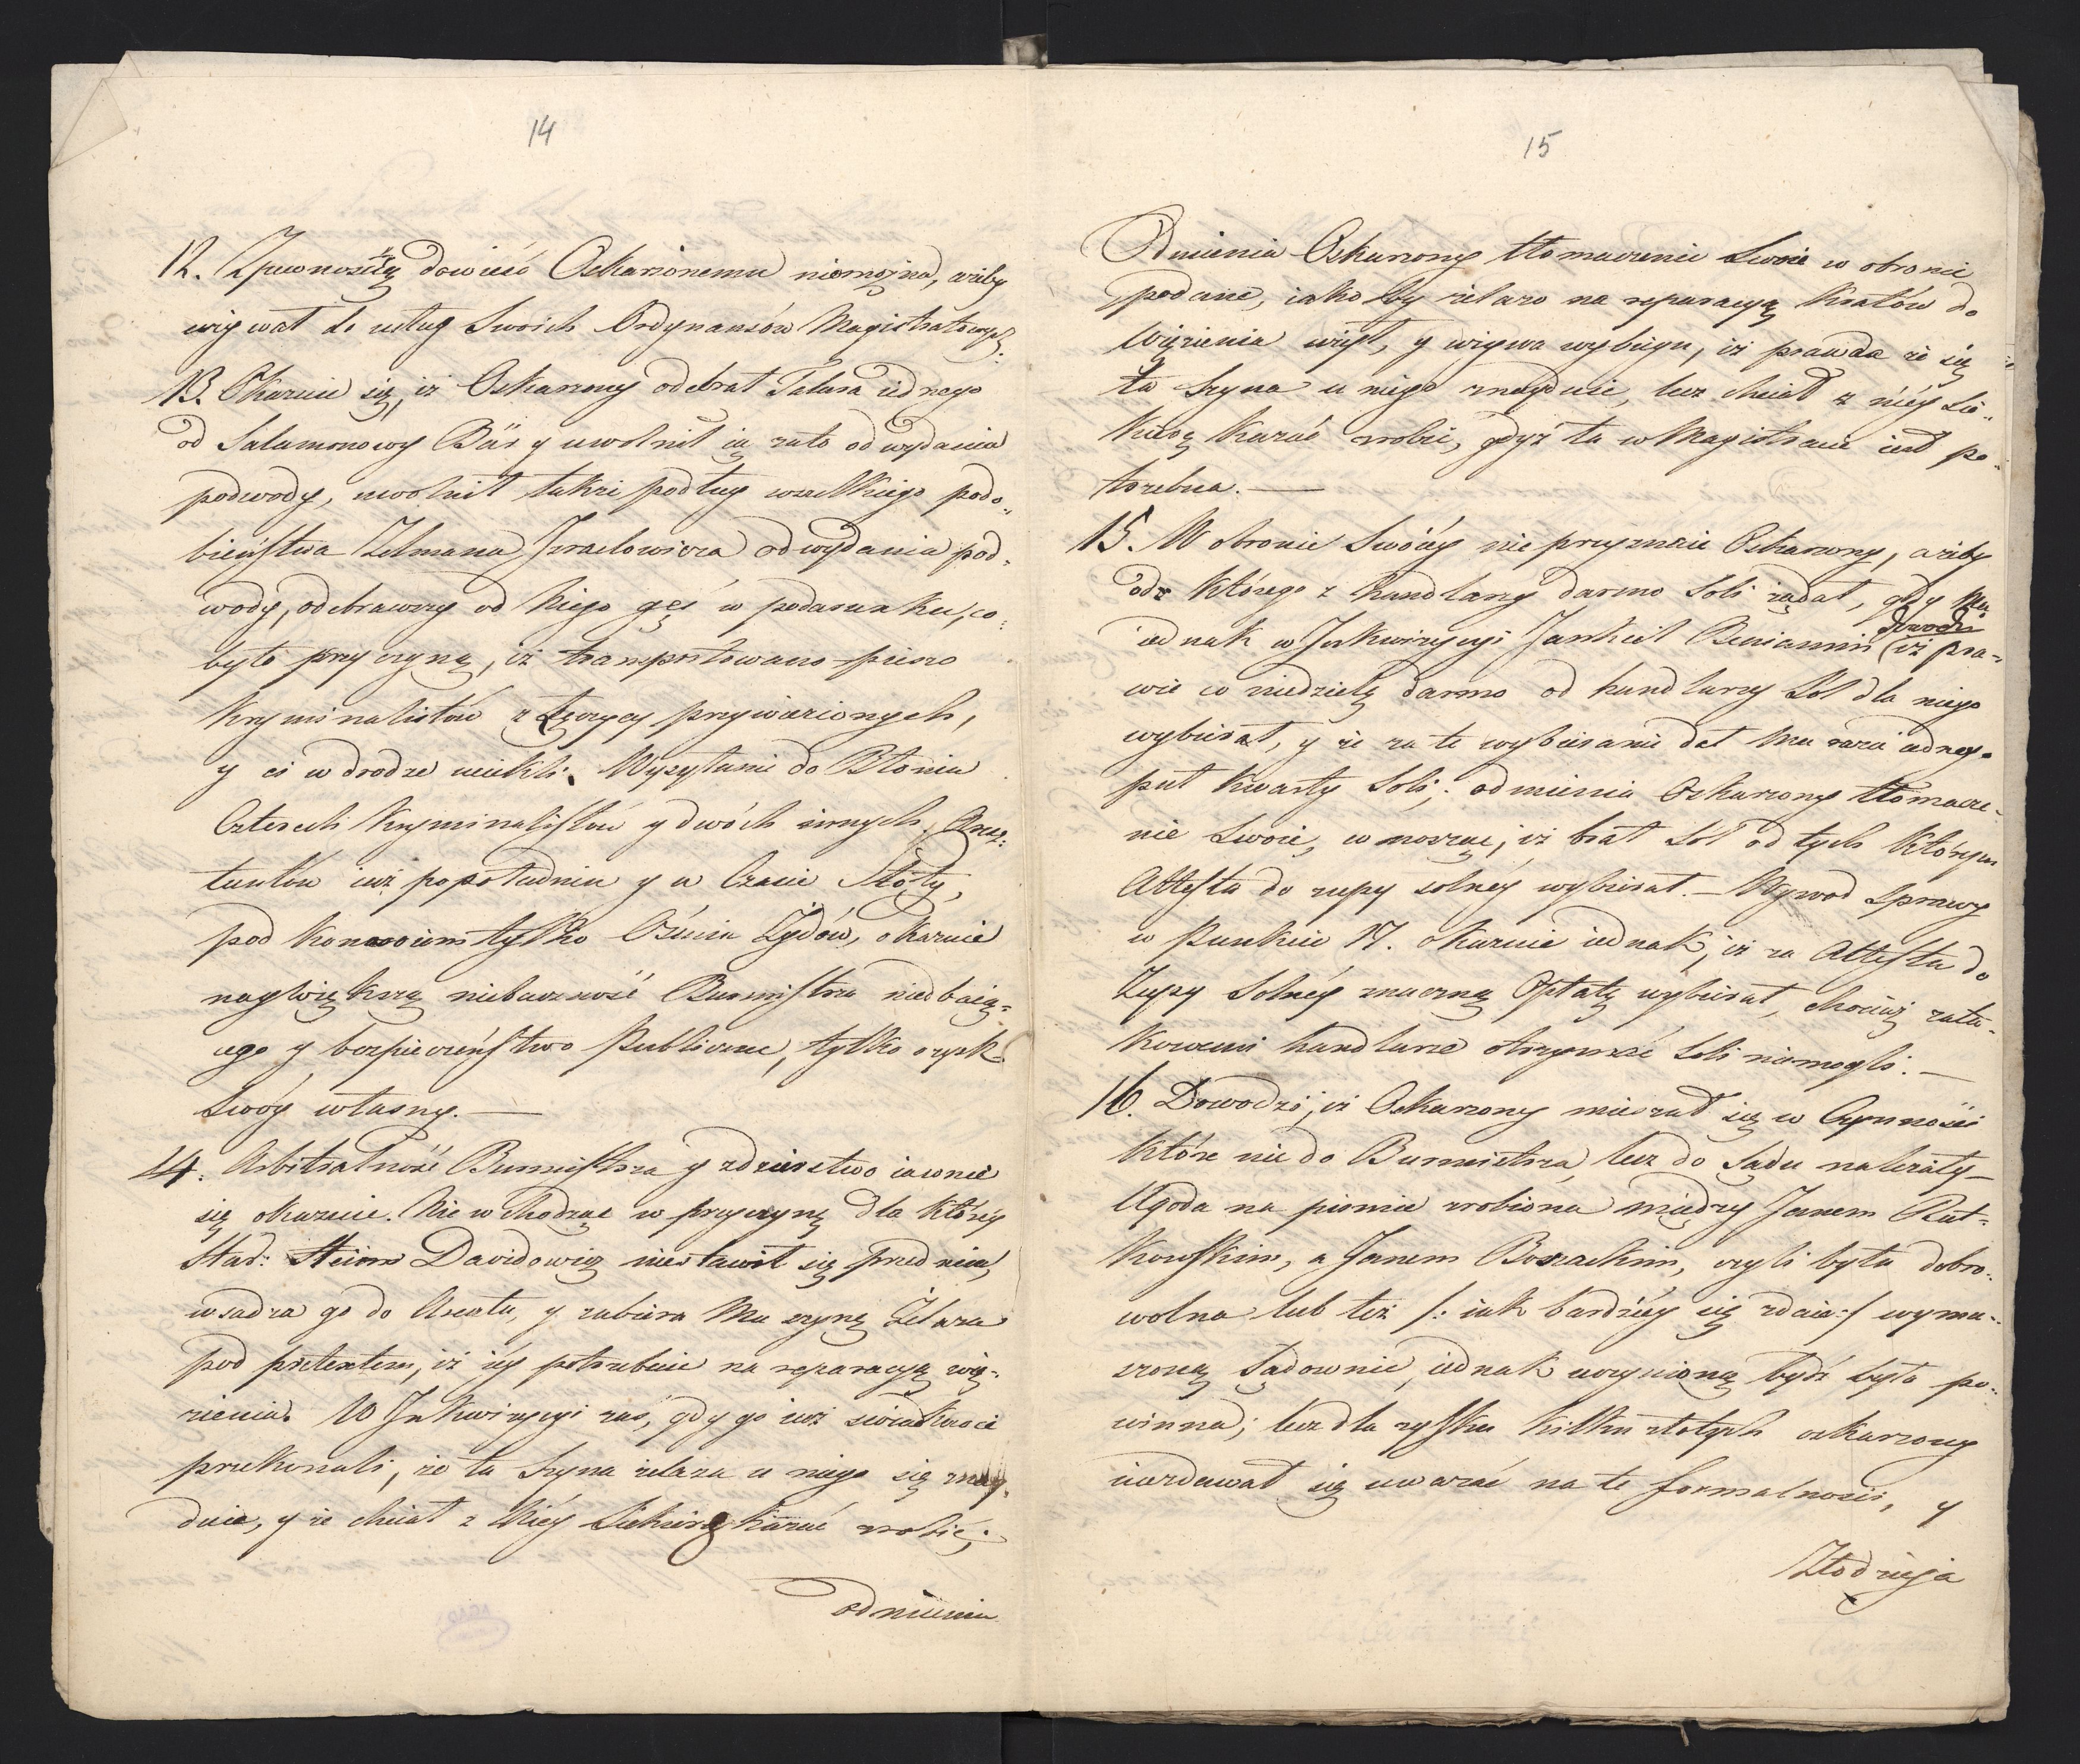 14
12. Zpewnością dowieść Oskarzonemu niemożna, ażeby
używał do usług Swoich Ordynansów Magistratowych.
13. Okazuie się, iż Oskarzony odebrał Talara iednego
od Salamonowy Bär y uwolnił ią zato od wydania
podwody, uwolnił także podług wszelkiego podo„
bieństwa Zelmana Izraelowicza od wydania pod„
wody, odebrawszy od Niego gęś w podarunku, co
było przyczyną, iż transportowano pieszo
Kryminalistów z Łęczycy przywiezionych,
y ci w drodze uciekli. Wysyłanie do Błonia
Czterech Kryminalistów y dwóch innych Aresz:
tantów iuż popołudniu y w Czasie Słoty,
pod konwoiem tylko Ośmiu Żydów, okazuie
naywiększą niebaczność Burmistrza niedbaią„
cego y bezpieczeństwo Publiczne, tylko o zysk
Swóy własny. —
14. Arbitralność Burmistrza y zdzierstwo iawnie
się okazuie. Nie wchodząc w przyczynę dla któréy
Stad: Heim Davidowicz niestawił się przed nim,
wsadza go do Aresztu, y zabiera Mu szynę Żelaza
pod pretextem, iż iéy potrzebuie na reparacyą wię„
zienia. W Inkwizycyi zaś, gdy go iuż świadkowie
przekonali, że ta Szyna żelaza u niego się znay„
duie, y że chciał z Niéy Siekierę kazać zrobić;
odmienia
15
Odmienia Oskarzony tłomaczenie Swoie w obronie
podane, iakoby żelazo na reparacyą Kratów do
Więzienia wziął, y używa wybiegu, iż prawda że się
ta Szyna u niego znayduie, lecz chciał z niéy Sie„
kierę kazać zrobić, gdyż ta w Magistracie iest po„
trzebna. —
15. W obronie Swoiéy nie przyznaie Oskarzony, ażeby
od którego z handlarzy darmo Soli żądał, gdy Mu
dowodzi
iednak w Inkwizycyi Jankiel Beniamin iż pra„
wie co niedzielę darmo od handlarzy Sól dla niego
wybierał, y że za te wybieranie dał Mu razu iednego
puł kwarty Soli; odmienia Oskarzony tłomacze„
nie Swoie, wnosząc, iż brał Sól od tych którym
Attesta do zupy solnéy wybierał. — Wywod Sprawy
w Punkcie 17. okazuie iednak, iż za Attesta do
Zupy Solnéy znaczną Opłatę wybierał, chociaż
handlarze otrzymać Soli niemogli. —
16. Dowodzi, iż Oskarzony mieszał się w Czynności
które nie do Burmistrza, lecz do Sądu należały —
Ugoda na piśmie zrobiona między Janem Rut„
kowskim, a Janem Bozackim, czyli była dobro„
wolna lub też /: iak bardziéy się zdaie :/ wymu„
szoną Sądownie, iednak uczynioną być była po„
winna; lecz dla zysku kilku złotych oskarzony
niezdawał się uważać na te formalności, y
Złodzieja